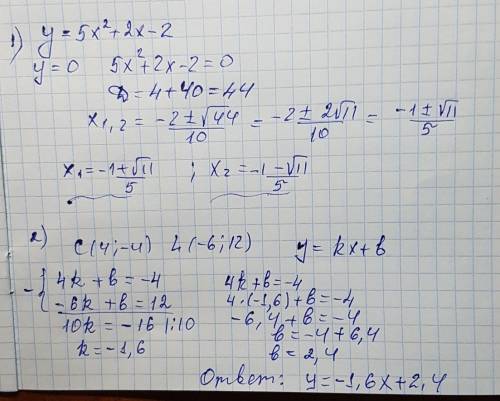 1) y = 5x²+2x-2
y=0 5x²+2x-2=0
D=4+40=44
x₁,₂ = (-2±√44)/10 = (-2±2√11)/10 = (-1±√11)/5
x₁=(-1+√11)/5 ; x₂=(-1-√11)/5
2) C(4;-4) L(-6;12) y=kx+b
-{4k+b=-4
-6k+b=12
10k=-16 |:10
k=-1,6
4k+b=-4
4·(-1,6)+b=-4
-6,4+b=-4
b=-4+6,4
b=2,4
Ответ: y=-1,6x+2,4